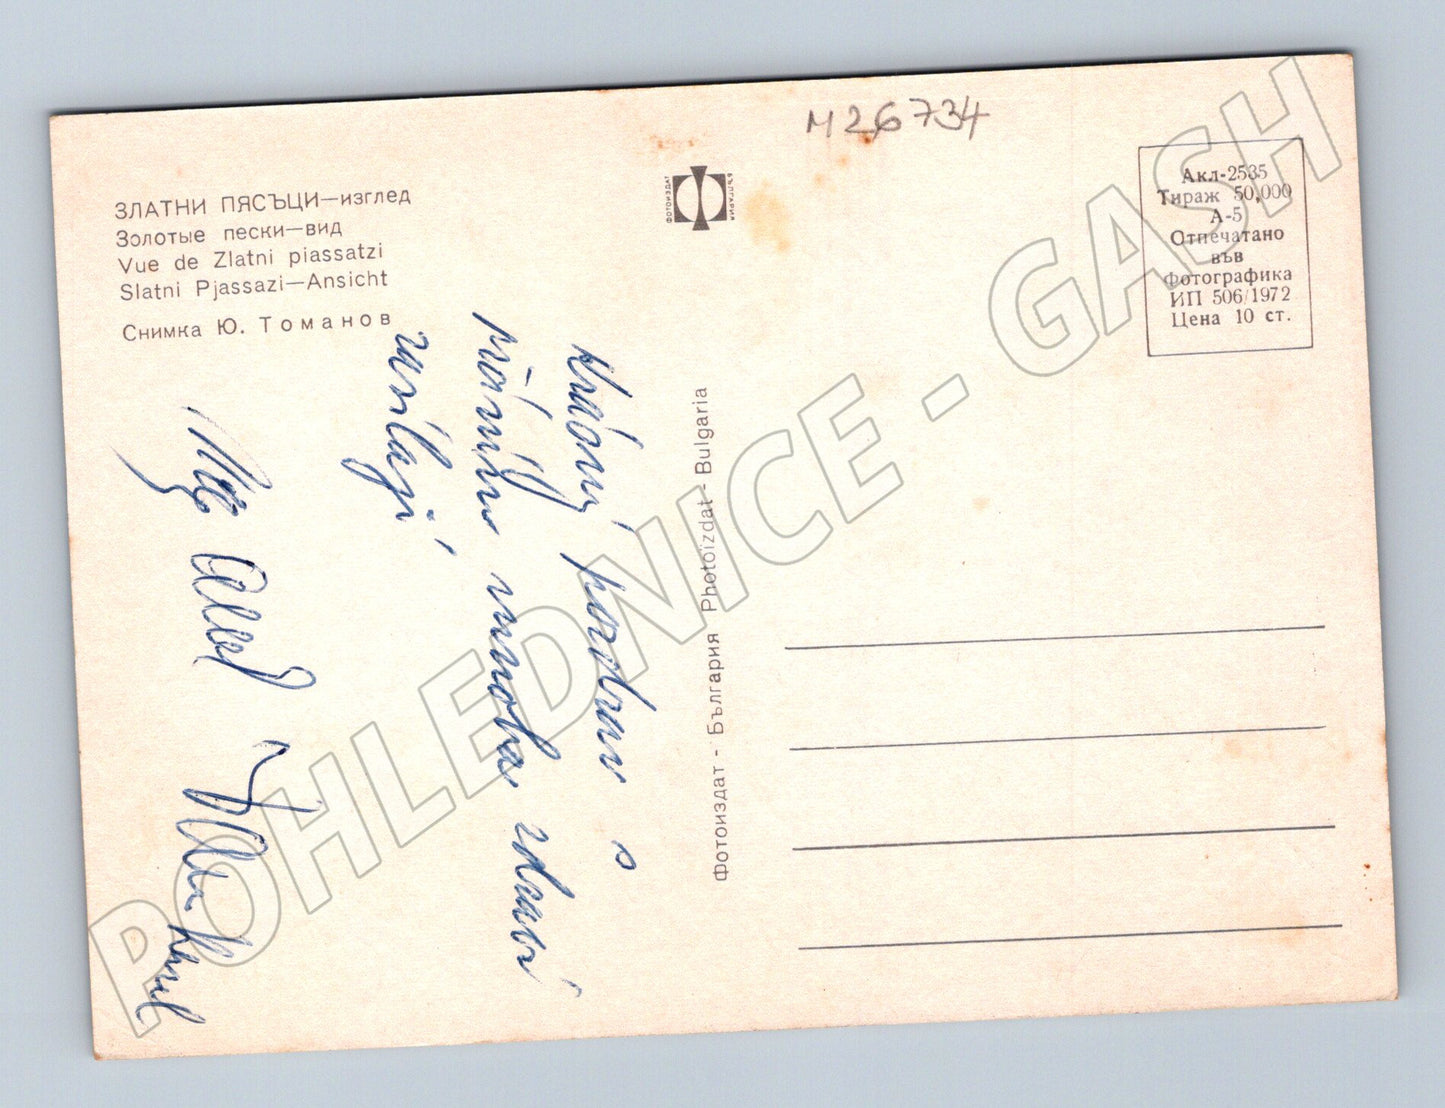 М26734
ЗЛАТНИ ПЯСЪЦИ—изглед
Золотые пески—вид
Vue de Zlatni piassatzi
Slatni Pjassazi—Ansicht
Снимка Ю. Томанов
ФОТОИЗДАТ
БЪЛГАРИЯ
Акл-2535
Тираж 50,000
А-5
Отпечатано
във
Фотографика
ИП 506/1972
Цена 10 ст.
Фотоиздат - България Photoïzdat - Bulgaria
Krásný pozdrav s
přáním mnoha zdraví
zasílají
POHLEDNICE - GASH